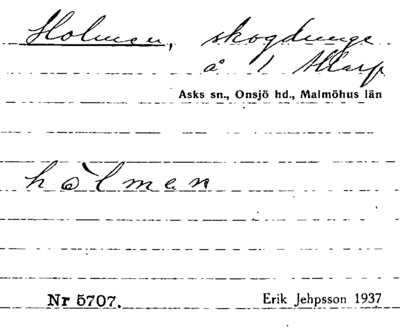 Holmen, skogdunge
å 1 Allarp
Asks sn., Onsjö hd., Malmöhus län
hòlmen
Nr 5707.
Erik Jehpsson 1937